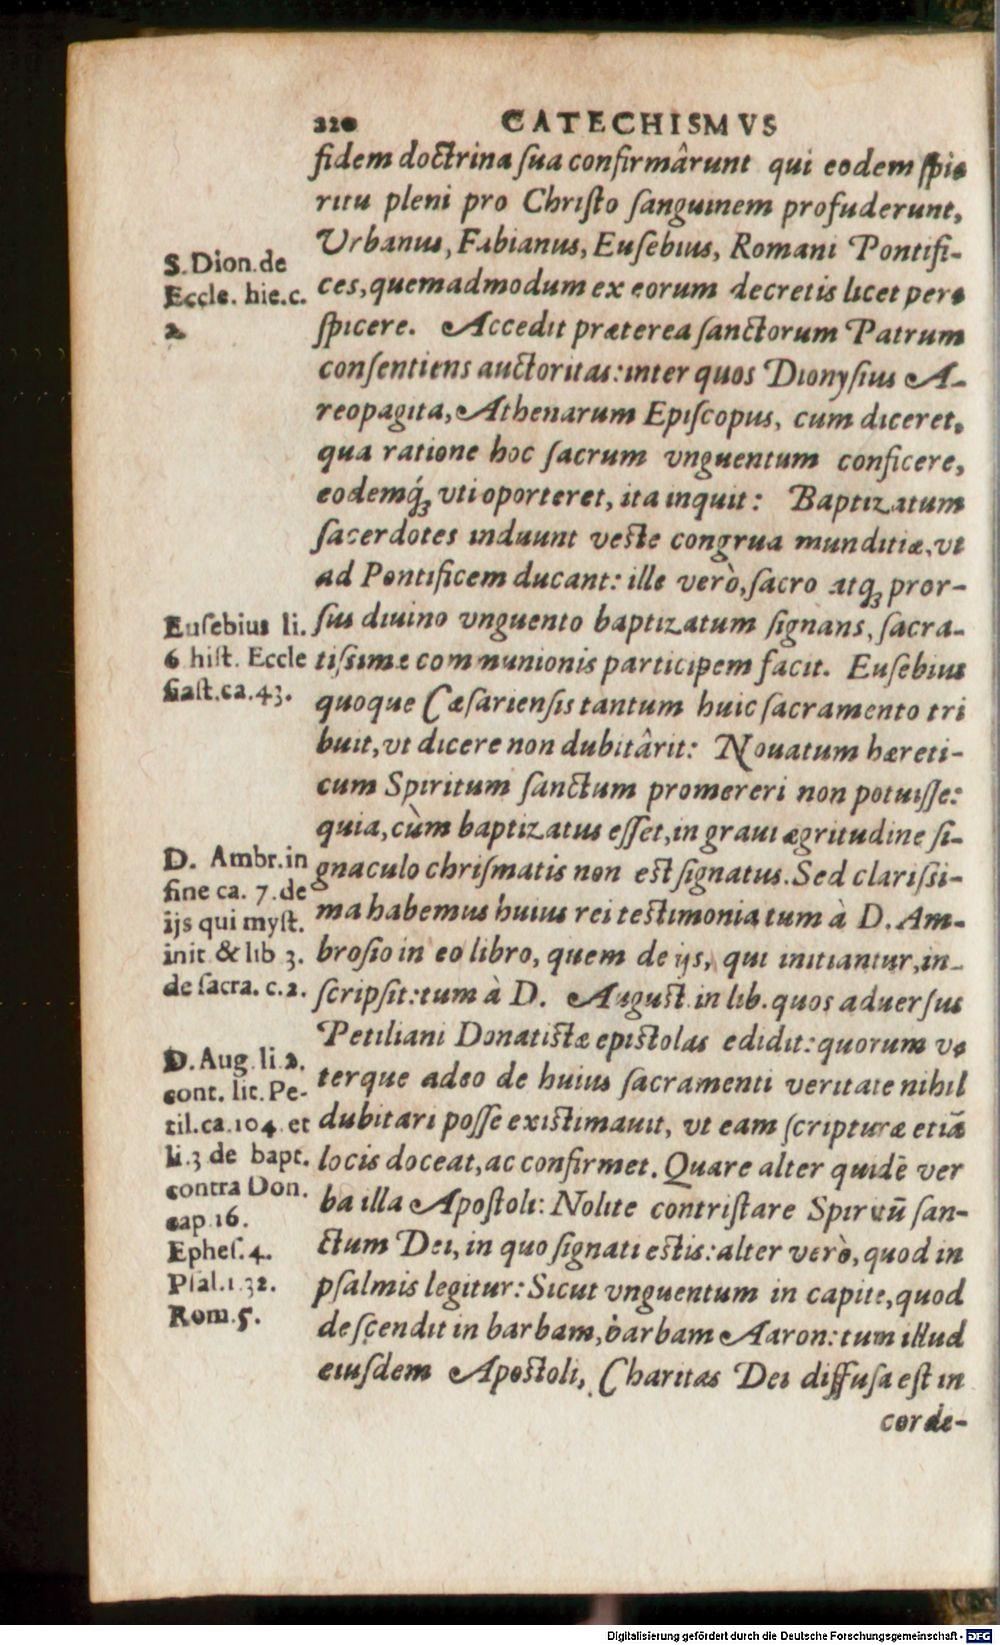 220 CATECHISMVS
fidem doctrina ſua confirmârunt qui eodem ſpi-
ritu pleni pro Chriſto ſanguinem profuderunt,
Vrbanus, Fabianus, Euſebius, Romani Pontifi-
ces, quemadmodum ex eorum decretis licet per-
ſpicere. Accedit præterea ſanctorum Patrum
conſentiens auctoritas: inter quos Dionyſius A-
reopagita, Athenarum Epiſcopus, cum diceret,
qua ratione hoc ſacrum vnguentum conficere,
eodemq́ꝫ vti oporteret, ita inquit: Baptizatum
ſacerdotes induunt veſte congrua munditiæ, vt
ad Pontificem ducant: ille verò, ſacro atqꝫ pror-
ſus diuino vnguento baptizatum ſignans, ſacra-
tiſsimæ communionis participem facit. Euſebius
quoque Cæſarienſis tantum huic ſacramento tri
buit, vt dicere non dubitârit: Nouatum hæreti-
cum Spiritum ſanctum promereri non potuiſſe:
quia, cùm baptizatus eſſet, in graui ægritudine ſi-
gnaculo chriſmatis non eſt ſignatus. Sed clariſsi-
ma habemus huius rei teſtimonia tum à D. Am-
broſio in eo libro, quem de ijs, qui initiantur, in-
ſcripſit: tum à D. Auguſt. in lib. quos aduerſus
Petiliani Donatiſtæ epiſtolas edidit: quorum v-
terque adeo de huius ſacramenti veritate nihil
dubitari poſſe exiſtimauit, vt eam ſcripturæ etiā
locis doceat, ac confirmet. Quare alter quidē ver
ba illa Apoſtoli: Nolite contriſtare Spiritū ſan-
ctum Dei, in quo ſignati eſtis: alter verò, quod in
pſalmis legitur: Sicut vnguentum in capite, quod
deſcendit in barbam, barbam Aaron: tum illud
eiuſdem Apoſtoli, Charitas Dei diffuſa eſt in
corde-
S. Dion. de
Eccle. hie. c.
2.
Euſebius li.
6 hiſt. Eccle
ſiaſt. ca. 43.
D. Ambr. in
fine ca. 7. de
ijs qui myſt.
init. & lib 3.
de ſacra. c. 2.
D. Aug. li. 2.
cont. lit. Pe-
til. ca. 104. et
li. 3 de bapt.
contra Don.
cap. 16.
Epheſ. 4.
Pſal. 132.
Rom. 5.
Digitalisierung gefördert durch die Deutsche Forschungsgemeinschaft - DFG